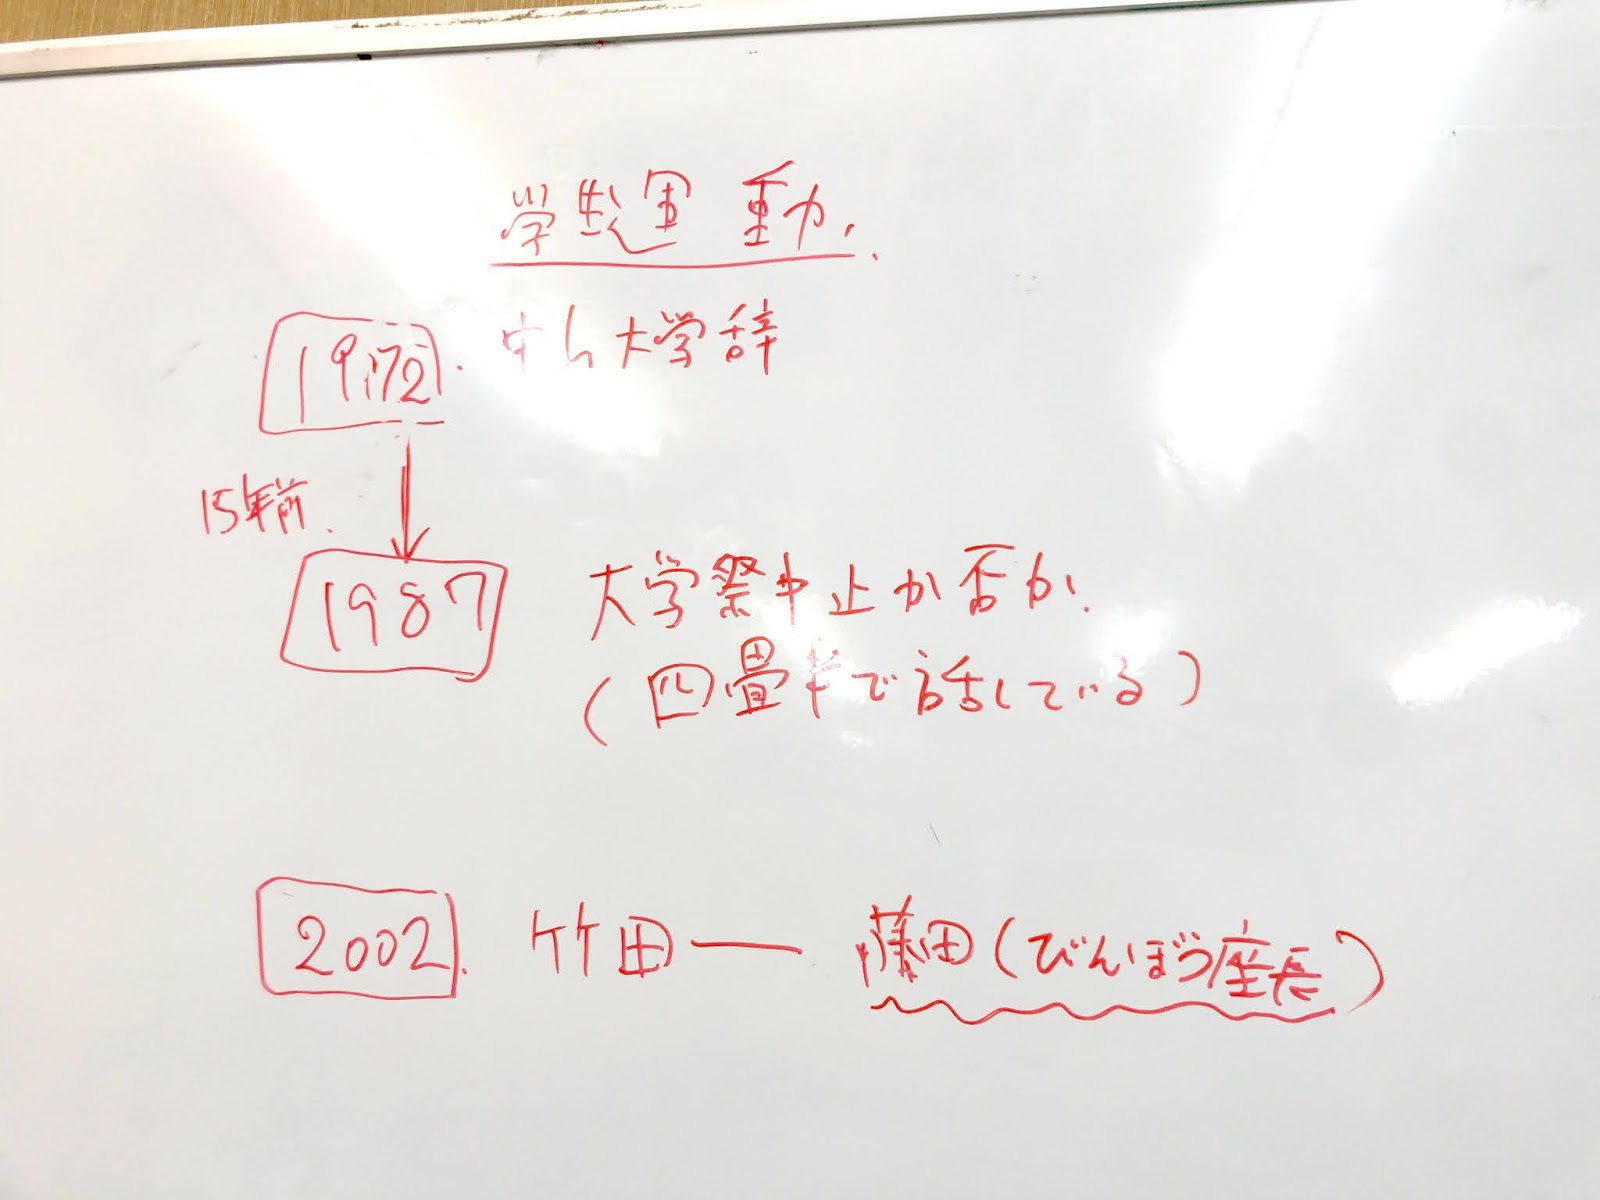 学生運動.
1972. 中山大学辞
15年前.
1987 大学祭中止か否か.
(四畳半で話している)
2002. 竹田 ー 藤田(びんぼう座長)